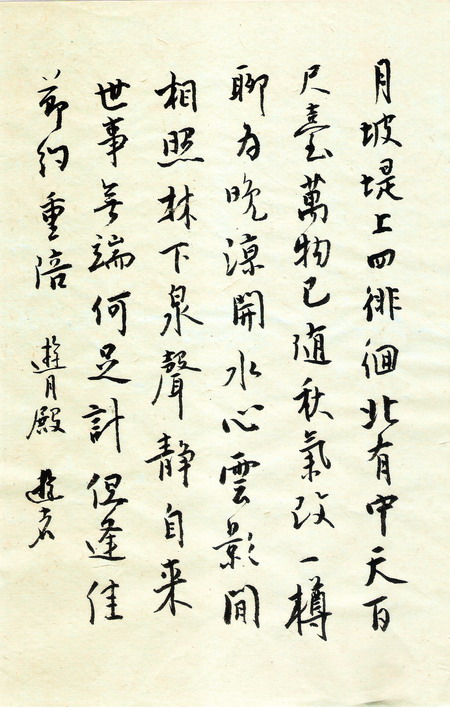 月坡堤上四徘徊北有中天百
尺臺萬物已随秋氣改一樽
聊为晚涼開水心雲影閒
相照林下泉聲静自来
世事無端何足計但逢佳
節約重陪 遊月殿